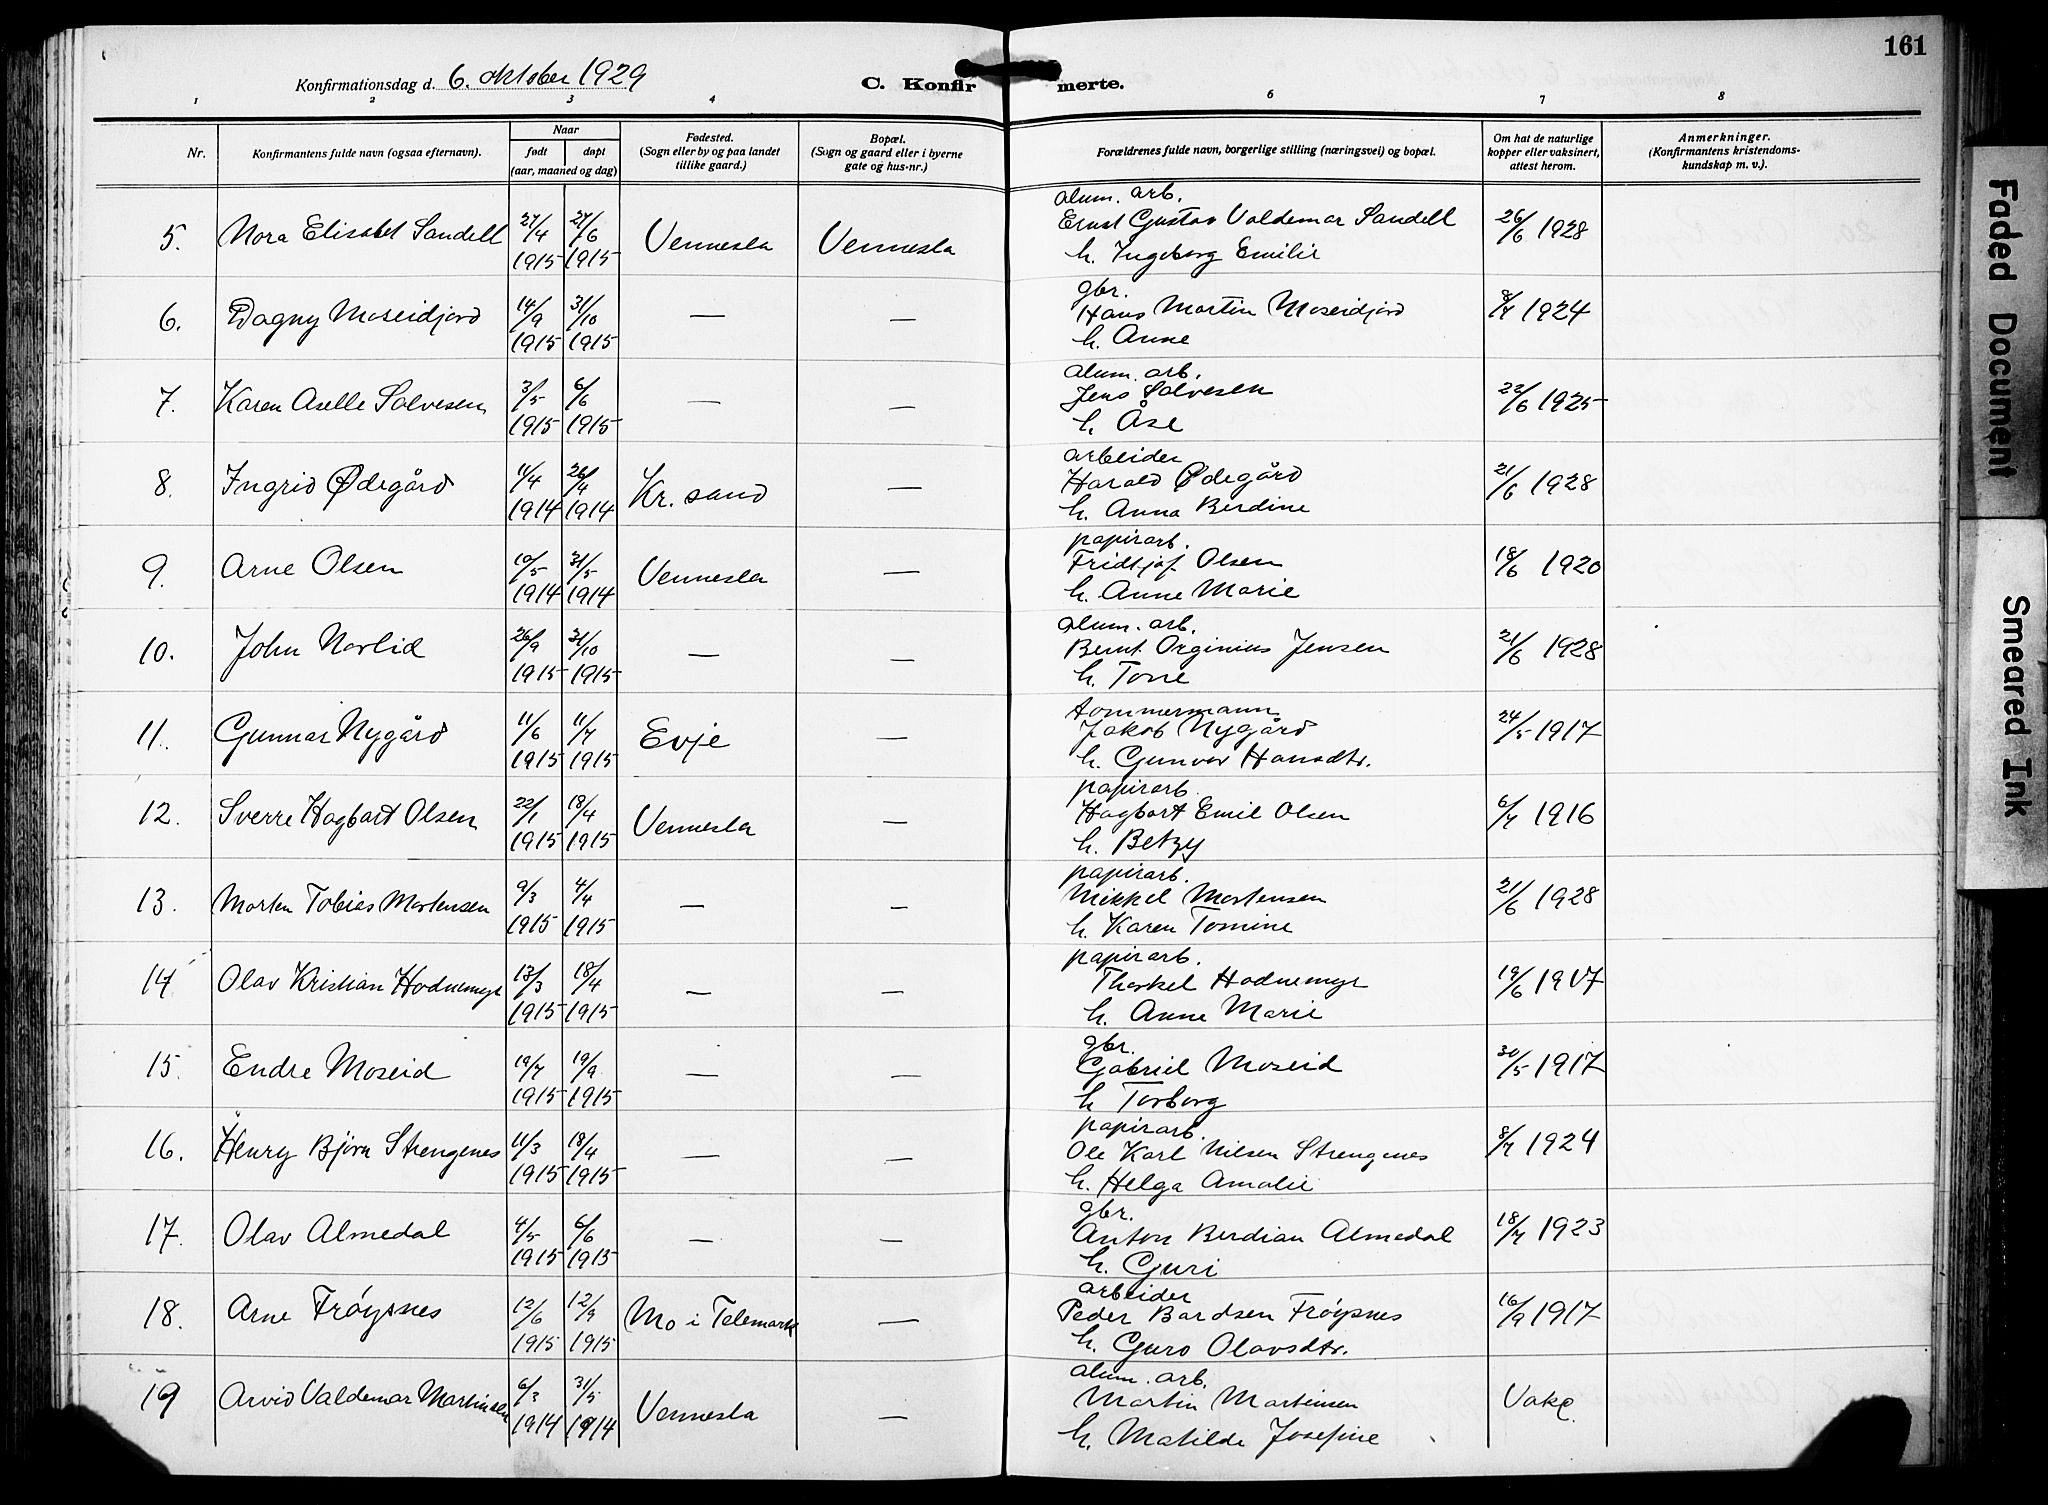 161
Konfirmationsdag d. 6. oktober 1929
C. Konfirmerte.
1 2 3 4 5 6 7 8
Nr.
Konfirmantens fulde navn (ogsaa efternavn).
Naar
født døpt
(aar, maaned og dag)
Fødested.
(Sogn eller by og paa landet
tillike gaard.)
Bopæl.
(Sogn og gaard eller i byerne
gate og hus-nr.)
Forældrenes fulde navn, borgerlige stilling (næringsvei) og bopæl.
Om hat de naturlige
kopper eller vaksinert,
attest herom.
Anmerkninger.
(Konfirmantens kristendoms-
kundskap m. v.).
alum. arb.
5. Nora Elisabet Sandell 27/4 1915 27/6 1915 Vennesla Vennesla Ernst Gustav Valdemar Sandell 26/6 1928
h. Ingeborg Emilie
gbr.
6. Dagny Moseidjord 14/9 1915 31/10 1915 — — Hans Martin Moseidjord 8/7 1924
h. Anne
alum. arb.
7. Karen Aselle Salvesen 3/5 1915 6/6 1915 — — Jens Salvesen 22/6 1925
h. Åse
arbeider
8. Ingrid Ødegård 11/4 1914 26/4 1914 Kr. sand — Harald Ødegård 21/6 1928
h. Anna Berdine
papirarb.
9. Arne Olsen 10/5 1914 31/5 1914 Vennesla — Fridtjof Olsen 18/6 1920
h. Anne Marie
alum. arb.
10. John Norlid 26/9 1915 31/10 1915 — — Bernt Orginius Jensen 21/6 1928
h. Tone
tommermann
11. Gunnar Nygård 11/6 1915 11/7 1915 Evje — Jakob Nygård 24/5 1917
h. Gunvor Hansdtr.
papirarb.
12. Sverre Hagbart Olsen 22/1 1915 18/4 1915 Vennesla — Hagbart Emil Olsen 6/7 1916
h. Betzy
papirarb.
13. Morten Tobias Mortensen 9/3 1915 4/4 1915 — — Mikkel Mortensen 21/6 1928
h. Karen Tomine
papirarb.
14 Olav Kristian Hodnemyr 13/3 1915 18/4 1915 — — Thorkel Hodnemyr 19/6 1917
h. Anne Marie
gbr.
15. Endre Moseid 19/7 1915 19/9 1915 — — Gabriel Moseid 30/5 1917
h Torborg
papirarb.
16. Henry Bjørn Strengenes 11/3 1915 18/4 1915 — — Ole Karl Nilsen Strengenes 8/7 1924
h. Helga Amalie
gbr.
17. Olav Almedal 4/5 1915 6/6 1915 — — Anton Berdian Almedal 18/7 1923
h. Guri
arbeider
18. Arne Frøysnes 12/6 1915 12/9 1915 Mo i Telemark — Peder Bårdsen Frøysnes 16/9 1917
h. Guro Olavsdtr.
alum. arb.
19 Arvid Valdemar Martinsen 6/3 1914 31/5 1914 Vennesla — Martin Martinsen Vake.
h. Matilde Josefine
Faded Document
Smeared Ink